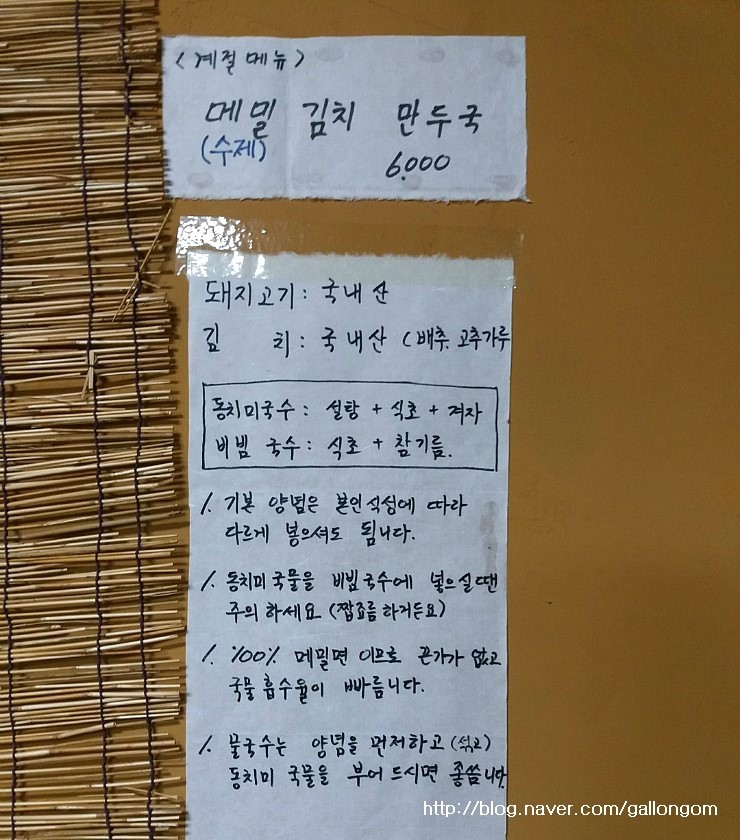 (계절 메뉴)
메밀 김치 만두국
(수제)
6,000
돼지고기: 국내산
김 치: 국내산 (배추. 고추가루
동치미국수: 설탕 + 식초 + 겨자
비빔 국수: 식초 + 참기름.
1. 기본 양념은 본인식성에 따라
다르게 넣으셔도 됩니다.
1. 동치미국물을 비빔국수에 넣으실땐
주의하세요 (짭쪼름하거든요)
1. 100% 메밀면 이므로 끈기가 없고
국물흡수율이 빠릅니다.
1. 물국수는 양념을 먼저하고 (섞고)
동치미 국물을 부어 드시면 좋씁니다.
http://blog.naver.com/gallongom